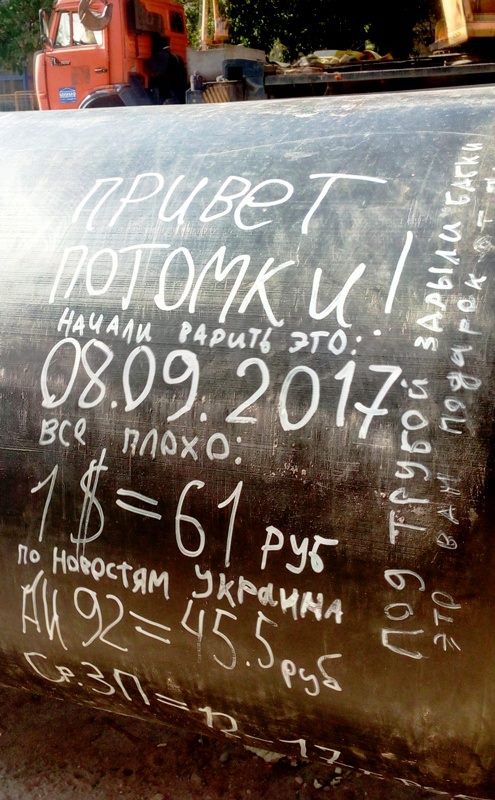 ПРИВЕТ
ПОТОМКИ!
НАЧАЛИ ВАРИТЬ ЭТО:
08.09.2017
ВСЕ ПЛОХО:
1$=61 РУБ
ПО НОВОСТЯМ УКРАИНА
АИ 92=45.5 руб
Ср.ЗП=
ПОД ТРУБОЙ ЗАРЫЛИ БАБКИ
ЭТО ВАМ ПОДАРОК ОТ